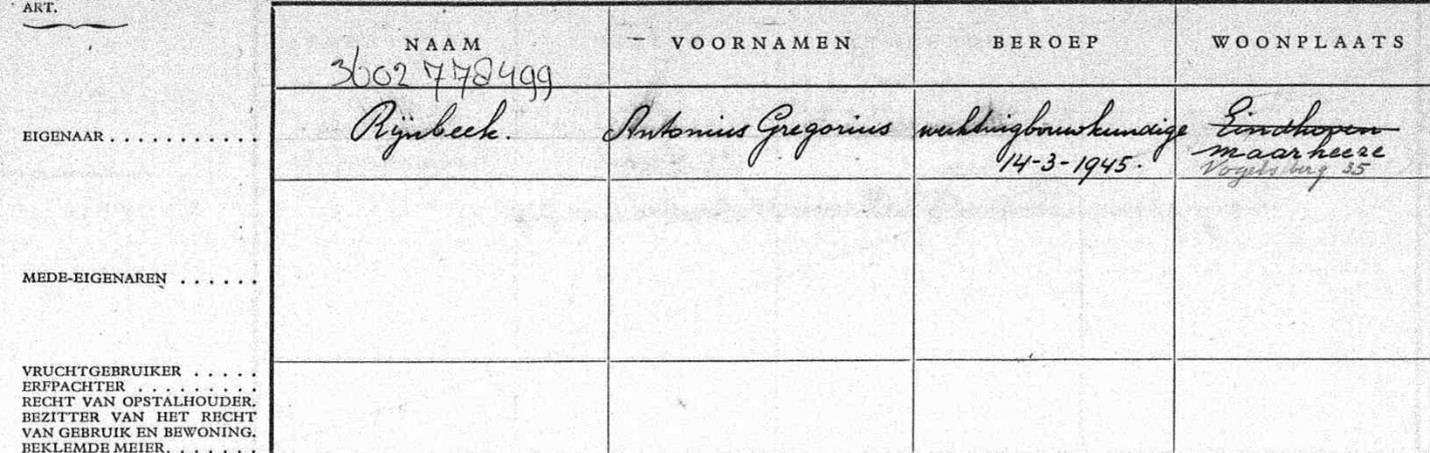 ART.
NAAM VOORNAMEN BEROEP WOONPLAATS
3602778499
EIGENAAR . . . . . . . . . . Rijnbeek. Antonius Gregorius werktuigbouwkundige Eindhoven
14-3-1945. maarheeze
Vogelsberg 35
MEDE-EIGENAREN . . . . . .
VRUCHTGEBRUIKER . . . . .
ERFPACHTER . . . . . . . . .
RECHT VAN OPSTALHOUDER.
BEZITTER VAN HET RECHT
VAN GEBRUIK EN BEWONING.
BEKLEMDE MEIER. . . . . . .